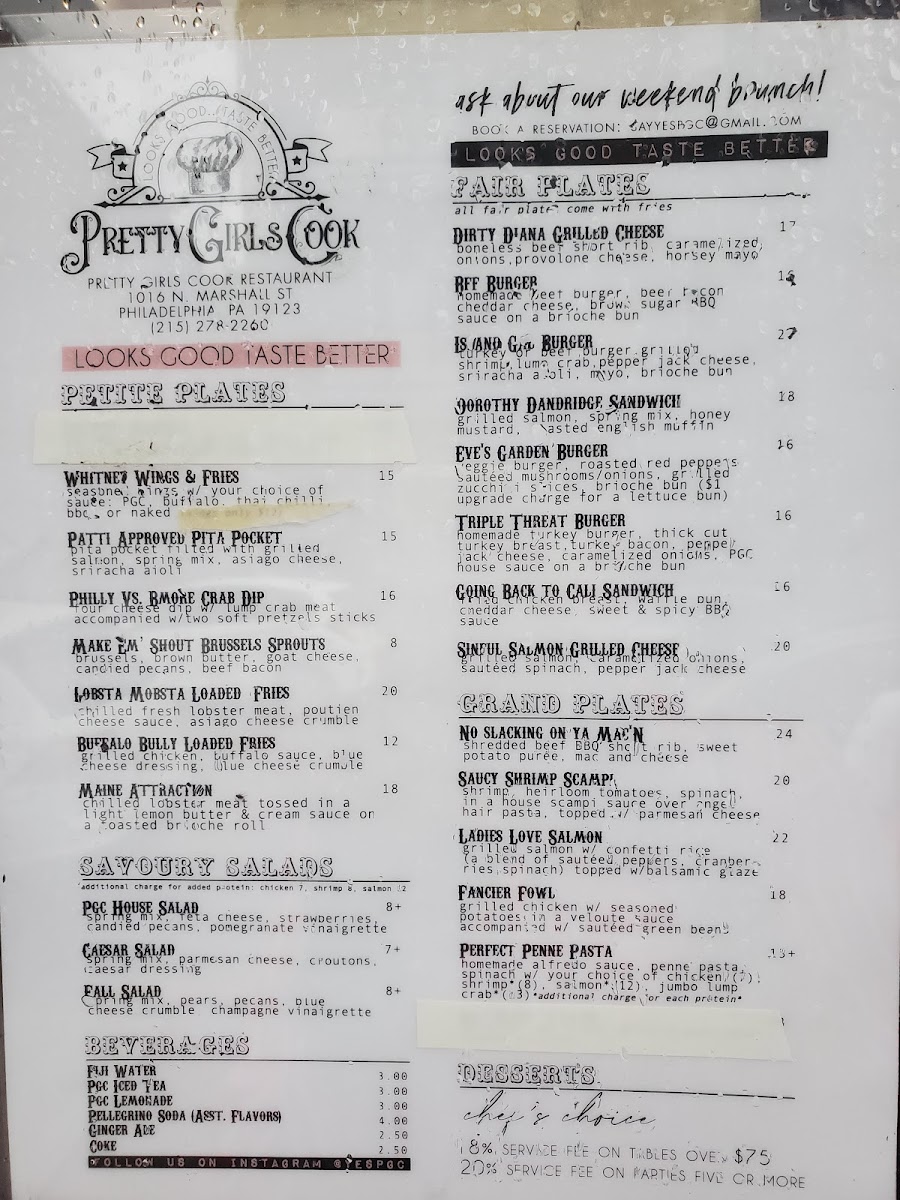 LOOKS GOOD. TASTE BETTER
PRETTY GIRLS COOK
PRETTY GIRLS COOK RESTAURANT
1016 N. MARSHALL ST
PHILADELPHIA PA 19123
(215) 278-2260
LOOKS GOOD TASTE BETTER
PETITE PLATES
WHITNEY WINGS & FRIES 15
seasoned wings w/ your choice of
sauce: PGC, buffalo, thai chilli
bbq, or naked
PATTI APPROVED PITA POCKET 15
pita pocket filled with grilled
salmon, spring mix, asiago cheese,
sriracha aioli
PHILLY VS. BMORE CRAB DIP 16
four cheese dip w/ lump crab meat
accompanied w/two soft pretzels sticks
MAKE EM' SHOUT BRUSSELS SPROUTS 8
brussels, brown butter, goat cheese,
candied pecans, beef bacon
LOBSTA MOBSTA LOADED FRIES 20
chilled fresh lobster meat, poutien
cheese sauce, asiago cheese crumble
BUFFALO BULLY LOADED FRIES 12
grilled chicken, buffalo sauce, blue
cheese dressing, blue cheese crumble
MAINE ATTRACTION 18
chilled lobster meat tossed in a
light lemon butter & cream sauce on
a toasted brioche roll
SAVOURY SALADS
*additional charge for added protein: chicken 7, shrimp 8, salmon 12
PGC HOUSE SALAD 8+
spring mix, feta cheese, strawberries,
candied pecans, pomegranate vinaigrette
CAESAR SALAD 7+
spring mix, parmesan cheese, croutons,
caesar dressing
FALL SALAD 8+
spring mix, pears, pecans, blue
cheese crumble champagne vinaigrette
BEVERAGES
FIJI WATER 3.00
PGC ICED TEA 3.00
PGC LEMONADE 3.00
PELLEGRINO SODA (ASST. FLAVORS) 4.00
GINGER ALE 2.50
COKE 2.50
FOLLOW US ON INSTAGRAM @YESPGC
ask about our weekend brunch!
BOOK A RESERVATION: SAYYESPGC@GMAIL.COM
LOOKS GOOD TASTE BETTER
FAIR PLATES
all fair plates come with fries
DIRTY DIANA GRILLED CHEESE 17
boneless beef short rib, caramelized
onions,provolone cheese, horsey mayo
BFF BURGER
homemade beef burger, beef bacon
cheddar cheese, brown sugar BBQ
sauce on a brioche bun
ISLAND GAL BURGER 27
turkey or beef burger,grilled
shrimp,lump crab,pepper jack cheese,
sriracha aioli, mayo, brioche bun
DOROTHY DANDRIDGE SANDWICH 18
grilled salmon, spring mix, honey
mustard, toasted english muffin
EVE'S GARDEN BURGER 16
veggie burger, roasted red peppers
sautéed mushrooms/onions, grilled
zucchini slices, brioche bun ($1
upgrade charge for a lettuce bun)
TRIPLE THREAT BURGER 16
homemade turkey burger, thick cut
turkey breast,turkey bacon, pepper
jack cheese, caramelized onions, PGC
house sauce on a brioche bun
GOING BACK TO CALI SANDWICH 16
fried chicken breast, waffle bun,
cheddar cheese, sweet & spicy BBQ
sauce
SINFUL SALMON GRILLED CHEESE 20
grilled salmon, caramelized onions,
sautéed spinach, pepper jack cheese
GRAND PLATES
NO SLACKING ON YA MAC'N 24
shredded beef BBQ short rib, sweet
potato purée, mac and cheese
SAUCY SHRIMP SCAMPI 20
shrimp, heirloom tomatoes, spinach,
in a house scampi sauce over angel
hair pasta, topped w/ parmesan cheese
LADIES LOVE SALMON 22
grilled salmon w/ confetti rice
(a blend of sautéed peppers, cranber-
ries,spinach) topped w/balsamic glaze
FANCIER FOWL 18
grilled chicken w/ seasoned
potatoes in a veloute sauce
accompanied w/ sautéed green beans
PERFECT PENNE PASTA 13+
homemade alfredo sauce, penne pasta,
spinach w/ your choice of chicken (7),
shrimp*(8), salmon*(12), jumbo lump
crab*(13)*additional charge for each protein*
DESSERTS
chef's choice
18% SERVICE FEE ON TABLES OVER $75
20% SERVICE FEE ON PARTIES FIVE OR MORE